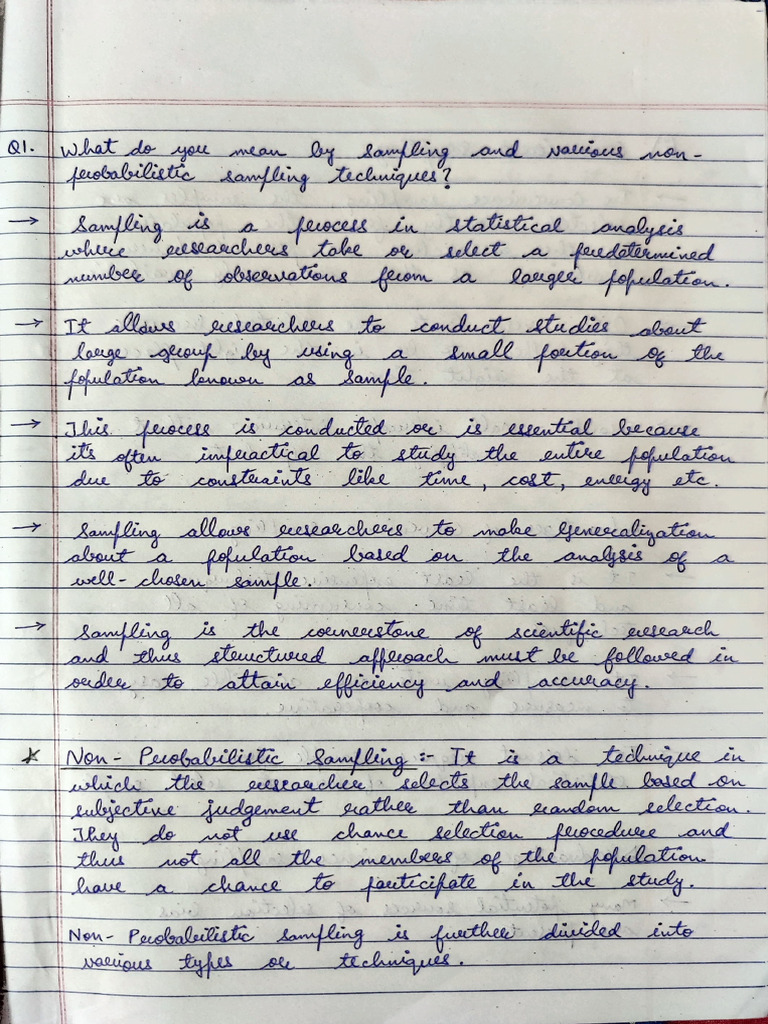 Q1. What do you mean by sampling and various non-
probabilistic sampling techniques?
→ Sampling is a process in statistical analysis
where researchers take or select a predetermined
number of observations from a larger population.
→ It allows researchers to conduct studies about
large group by using a small portion of the
population known as sample.
→ This process is conducted or is essential because
it's often impractical to study the entire population
due to constraints like time, cost, energy etc.
→ Sampling allows researchers to make generalization
about a population based on the analysis of a
well-chosen sample.
→ Sampling is the cornerstone of scientific research
and thus structured approach must be followed in
order to attain efficiency and accuracy.
* Non-Probabilistic Sampling :- It is a technique in
which the researcher selects the sample based on
subjective judgement rather than random selection.
They do not use chance selection procedure and
thus not all the members of the population
have a chance to participate in the study.
Non-Probabilistic sampling is further divided into
various types or techniques.